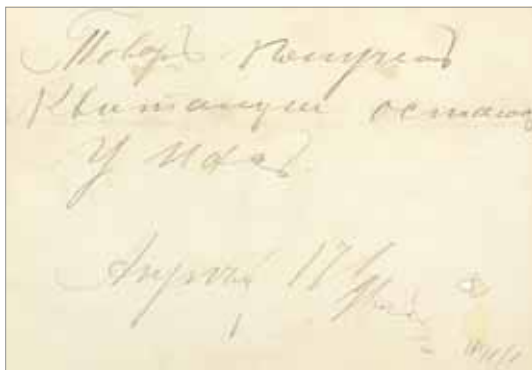 Товаръ получилъ
Квитанции остаю
у насъ.
Апреля 17